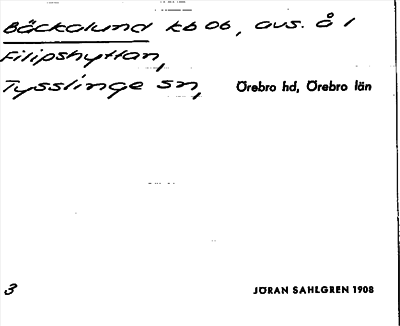 Bäckalund kb 06, avs. å 1
Filipshyttan,
Tysslinge sn, Örebro hd, Örebro län
3 JÖRAN SAHLGREN 1908